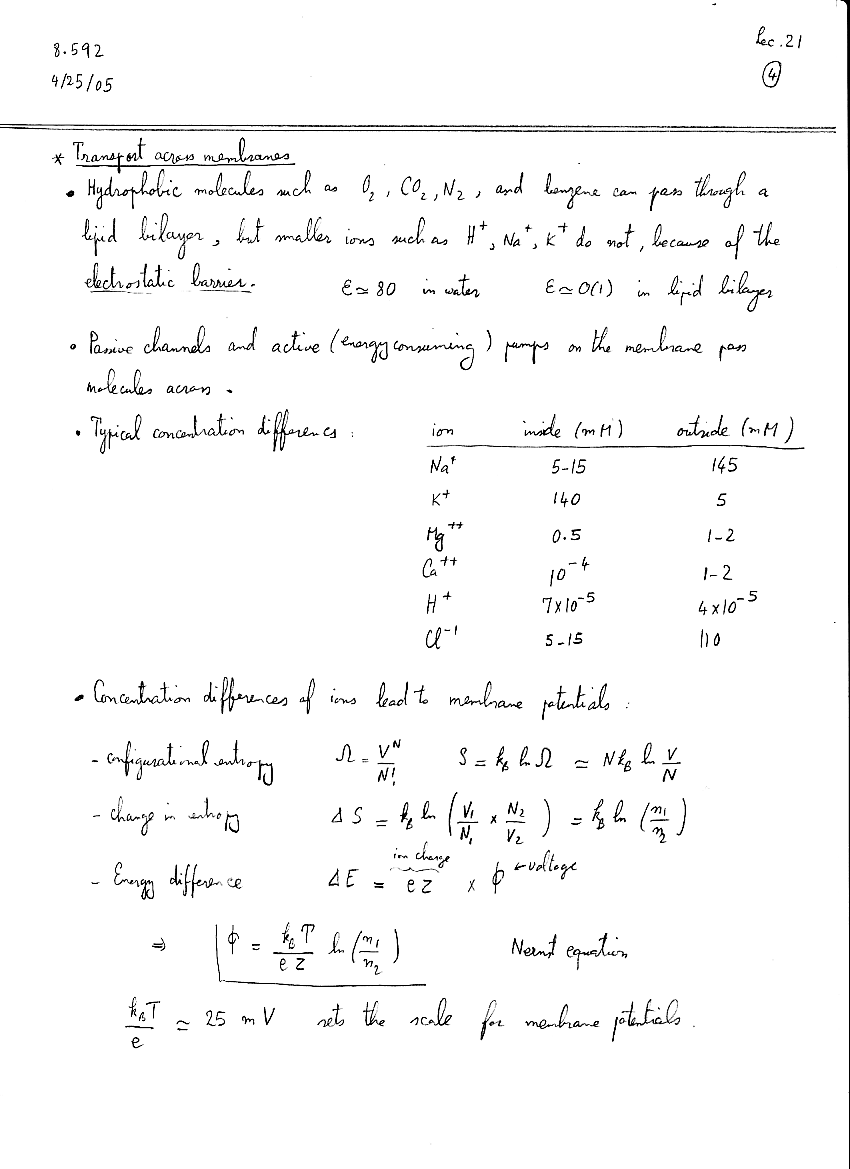 8.592
Lec. 21
4/25/05
4
* Transport across membranes
• Hydrophobic molecules such as O₂, CO₂, N₂, and benzene can pass through a
lipid bilayer, but smaller ions such as H⁺, Na⁺, K⁺ do not, because of the
electrostatic barrier. ε ≃ 80 in water ε ≃ O(1) in lipid bilayer
• Passive channels and active (energy consuming) pumps on the membrane pass
molecules across.
• Typical concentration differences: ion inside (mM) outside (mM)
Na⁺ 5-15 145
K⁺ 140 5
Mg⁺⁺ 0.5 1-2
Ca⁺⁺ 10⁻⁴ 1-2
H⁺ 7×10⁻⁵ 4×10⁻⁵
Cl⁻¹ 5-15 110
• Concentration differences of ions lead to membrane potentials:
- configurational entropy Ω = V^N/N! S = k_B ln Ω ≃ N k_B ln V/N
- change in entropy ΔS = k_B ln (V₁/N₁ × N₂/V₂) = k_B ln (n₁/n₂)
ion charge
- Energy difference ΔE = e z × ϕ ← voltage
⇒ ϕ = k_B T/e z ln (n₁/n₂) Nernst equation
k_B T/e ≃ 25 mV sets the scale for membrane potentials.